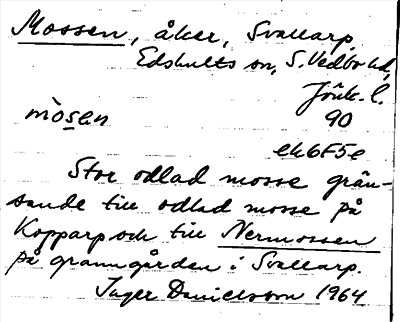 Mossen, åker, Svallarp,
Edshults sn, S. Vedbo hd,
Jönk. l.
mòsen 90
ek6F5e
Stor odlad mosse grän-
sande till odlad mosse på
Kopparp och till Nermossen
på granngården i Svallarp.
Inger Danielsson 1964